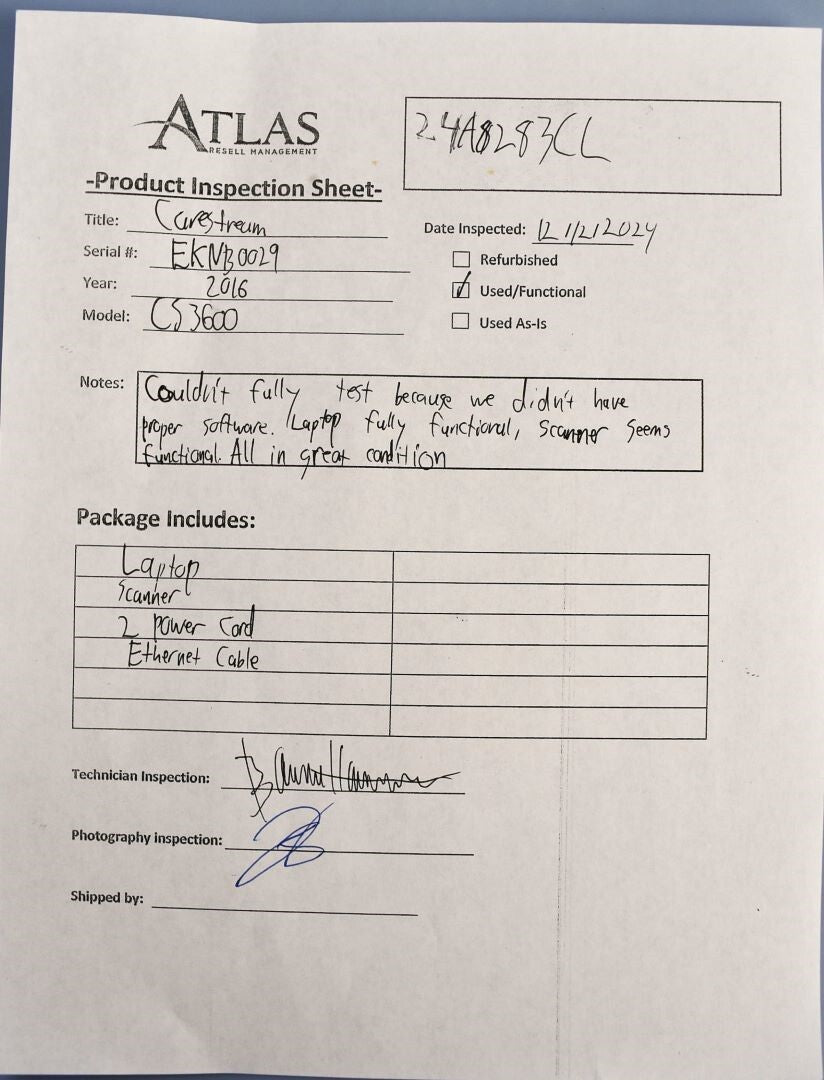 ATLAS
RESELL MANAGEMENT
24A8283CL
-Product Inspection Sheet-
Title: Carestream
Date Inspected: 12/12/2024
Serial #: EKNB0029
Refurbished
Year: 2016
Used/Functional
Model: CS3600
Used As-Is
Notes: Couldn't fully test because we didn't have
proper software. Laptop fully functional, scanner seems
functional. All in great condition
Package Includes:
Laptop
Scanner
2 power Cord
Ethernet Cable
Technician Inspection:
Photography inspection:
Shipped by: